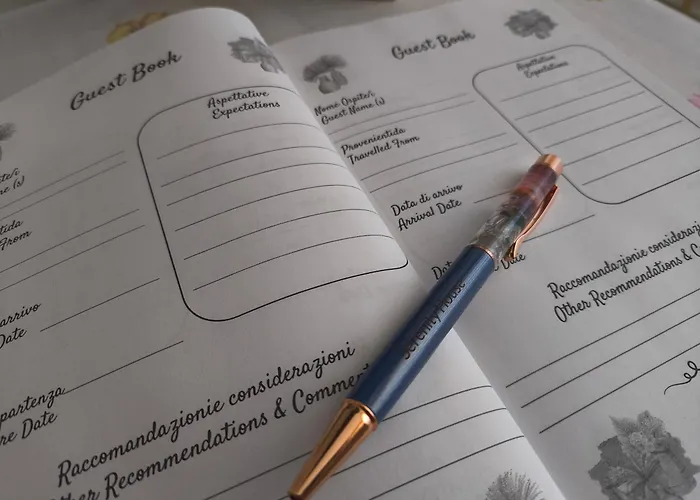 Guest Book
Aspettative
Expectations
te/i
e (s)
tida
From
arrivo
Date
partenza
re Date
Raccomandazionie considerazioni
ther Recommendations & Commen
Guest Book
Aspettative
Expectations
Nome Ospite/i
Guest Name (s)
Provenientida
Travelled From
Data di arrivo
Arrival Date
Dat
De
e Date
Raccomandazionie considerazi
Other Recommendations & C
Serenity House